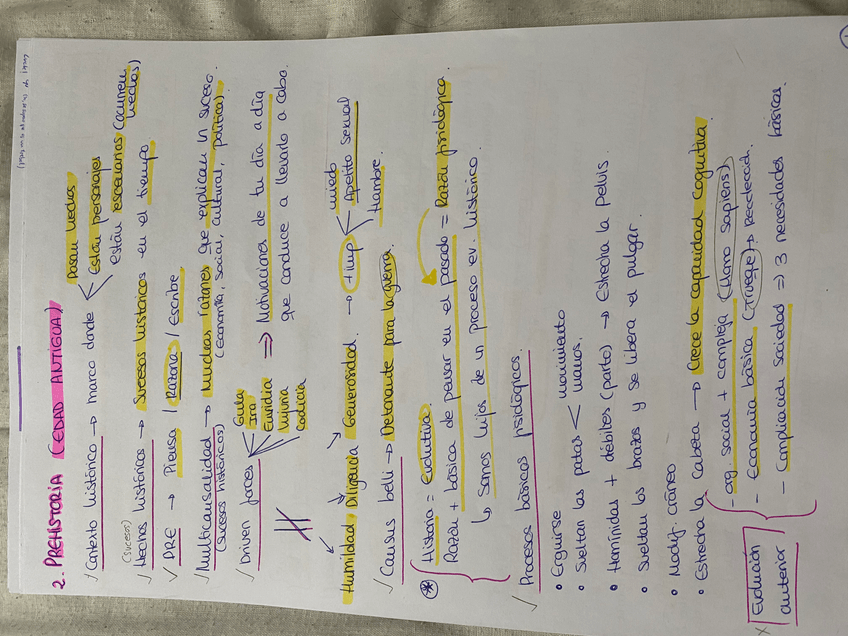 2. PREHISTORIA (EDAD ANTIGUA)
✓ Contexto histórico → marco donde < Pasan hechos
Están personajes
están escenarios (ocurren hechos)
(sucesos)
✓ Hechos históricos → Sucesos históricos en el tiempo
✓ DRE → Piensa / Razona / Escribe
✓ Multicausalidad → Muchas razones que explican un suceso.
(sucesos históricos) (economía, social, cultural, política)
✓ Driven forces Gula
Ira
Envidia
Lujuria
Codicia
⇒ Motivaciones de tu día a día
que conduce a llevarlo a cabo.
Humildad, Diligencia Generosidad. → + imp < miedo
Apetito sexual
Hambre.
✓ Causus belli → Detonante para la guerra.
* Historia = Evolutiva
Razón + básica de pensar en el pasado = Razón fisiológica.
↳ Somos hijos de un proceso ev. histórico.
✓ Procesos básicos fisiológicos.
• Erguirse
• Sueltan las patas < movimiento
manos.
• Homínidas + débiles (parto) → Estrecha la pelvis
• Sueltan los brazos y se libera el pulgar.
• Modif. cráneo
• Estrecha la cabeza → Crece la capacidad cognitiva.
x Evolución anterior
- org. social + compleja (Homo sapiens)
- Economía básica (trueque) → Recolecch.
- Ampliación sociedad => 3 necesidades básicas.